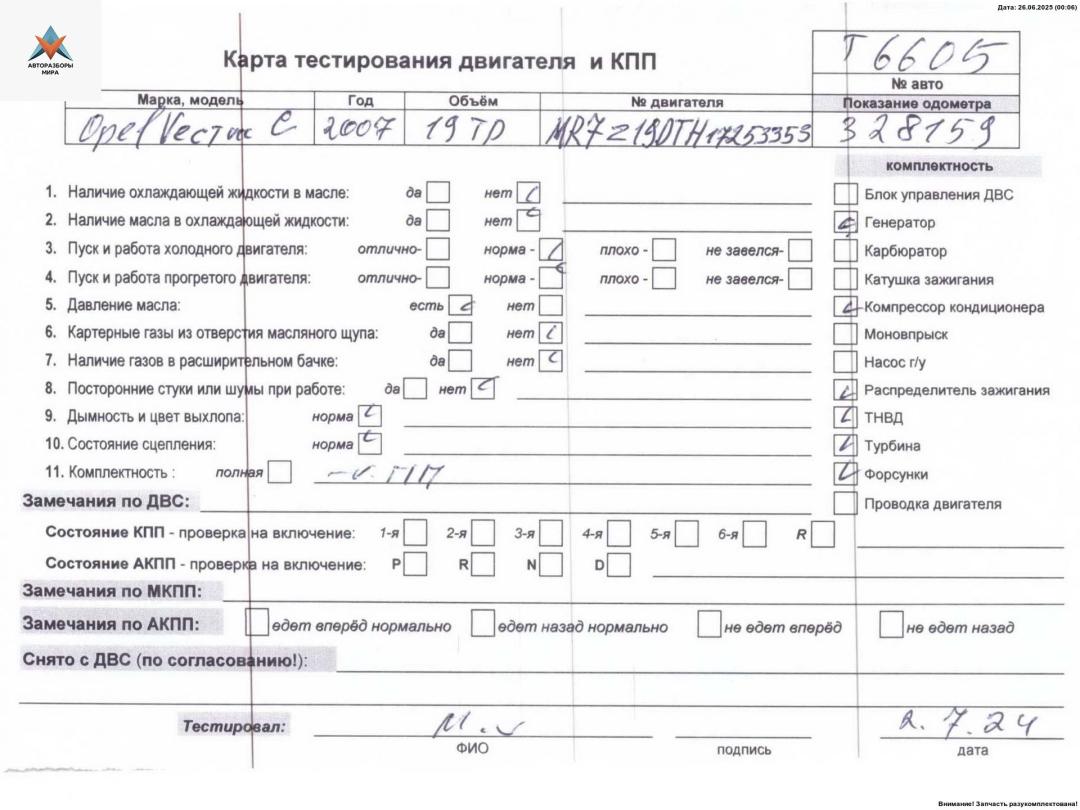 Дата: 26.06.2025 (00:06)
АВТОРАЗБОРЫ
МИРА
Карта тестирования двигателя и КПП
T 6605
№ авто
Марка, модель Год Объём № двигателя Показание одометра
Opel Vectra C 2007 19 TD MR7Z19DTH17253353 328159
комплектность
1. Наличие охлаждающей жидкости в масле: да нет
Блок управления ДВС
2. Наличие масла в охлаждающей жидкости: да нет
Генератор
3. Пуск и работа холодного двигателя: отлично- норма - плохо - не завелся-
Карбюратор
4. Пуск и работа прогретого двигателя: отлично- норма - плохо - не завелся-
Катушка зажигания
5. Давление масла: есть нет
Компрессор кондиционера
6. Картерные газы из отверстия масляного щупа: да нет
Моновпрыск
7. Наличие газов в расширительном бачке: да нет
Насос г/у
8. Посторонние стуки или шумы при работе: да нет
Распределитель зажигания
9. Дымность и цвет выхлопа: норма
ТНВД
10. Состояние сцепления: норма
Турбина
11. Комплектность : полная
Форсунки
Замечания по ДВС:
Проводка двигателя
Состояние КПП - проверка на включение: 1-я 2-я 3-я 4-я 5-я 6-я R
Состояние АКПП - проверка на включение: P R N D
Замечания по МКПП:
Замечания по АКПП: едет вперёд нормально едет назад нормально не едет вперёд не едет назад
Снято с ДВС (по согласованию!):
Тестировал: 2.7.24
ФИО подпись дата
Внимание! Запчасть разукомплектована!